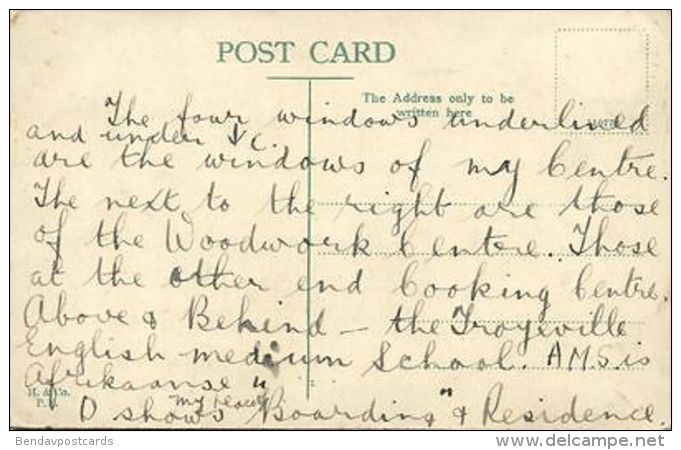 POST CARD
The Address only to be
written here
The four windows underlined
and under ↓ C.
are the windows of my Centre.
The next to the right are those
of the Woodwork Centre. Those
at the other end Cooking Centre.
Above & Behind — the Troyeville
English medium School. A.M.S. is
Afrikaanse "
H. & Co.
P.
my place
D shows "Boarding" & Residence.
Bendavpostcards
www.delcampe.net